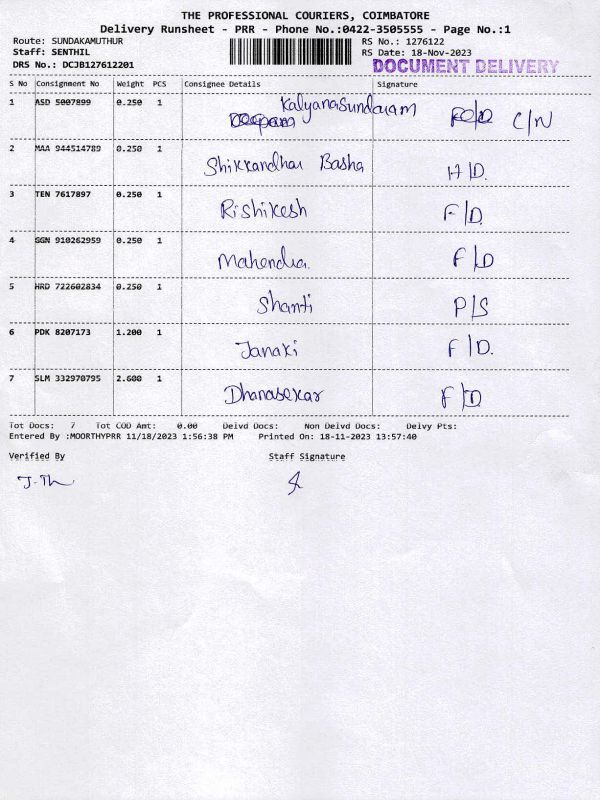 THE PROFESSIONAL COURIERS, COIMBATORE
Delivery Runsheet - PRR - Phone No.:0422-3505555 - Page No.:1
Route: SUNDAKAMUTHUR RS No.: 1276122
Staff: SENTHIL RS Date: 18-Nov-2023
DRS No.: DCJB127612201 DOCUMENT DELIVERY
S No Consignment No Weight PCS Consignee Details Signature
1 ASD 5007899 0.250 1 Kalyanasundaram C/N
2 MAA 944514789 0.250 1 Shikkandhar Basha H/D.
3 TEN 7617897 0.250 1 Rishikesh F/D.
4 GGN 910262959 0.250 1 Mahendra. F/D
5 HRD 722602834 0.250 1 Shanti P/S
6 PDK 8207173 1.200 1 Janaki F/D.
7 SLM 332970795 2.600 1 Dhanasekar F/D
Tot Docs: 7 Tot COD Amt: 0.00 Delvd Docs: Non Delvd Docs: Delvy Pts:
Entered By :MOORTHYPRR 11/18/2023 1:56:38 PM Printed On: 18-11-2023 13:57:40
Verified By Staff Signature